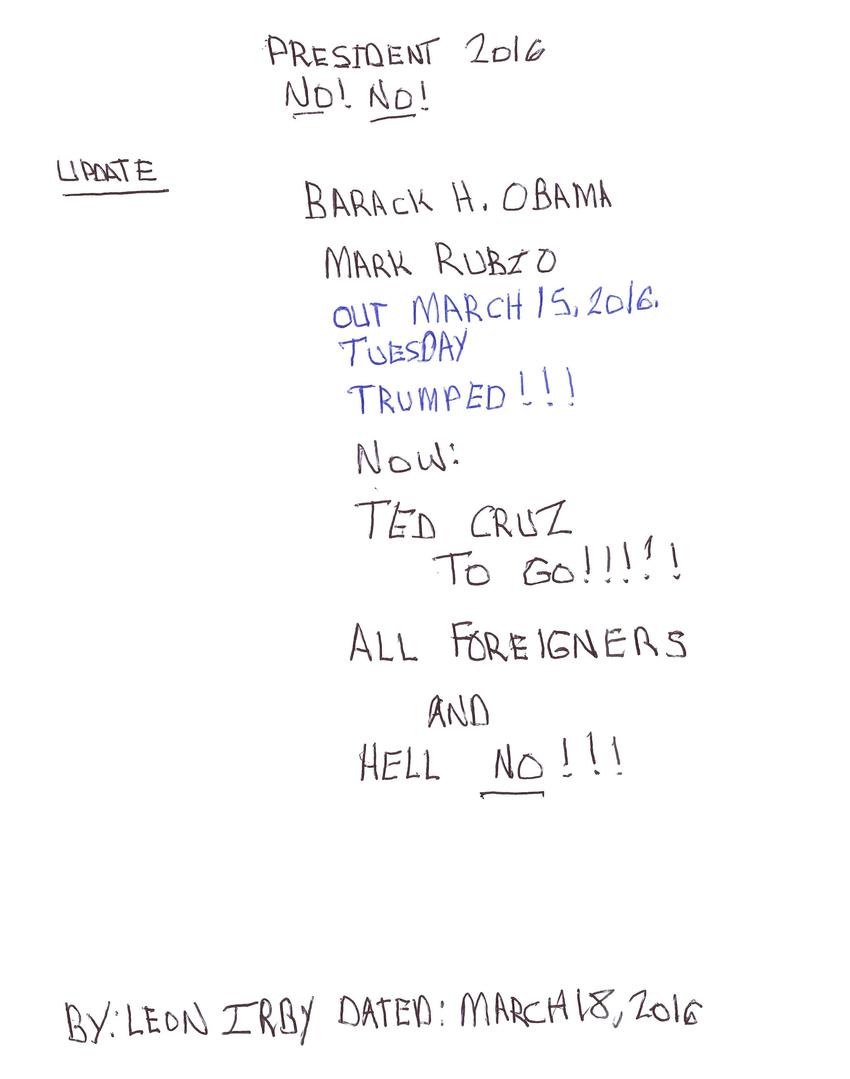 PRESIDENT 2016
NO! NO!
UPDATE
BARACK H. OBAMA
MARK RUBIO
OUT MARCH 15, 2016.
TUESDAY
TRUMPED!!!
NOW:
TED CRUZ
TO GO!!!!!
ALL FOREIGNERS
AND
HELL NO!!!
BY: LEON IRBY DATED: MARCH 18, 2016